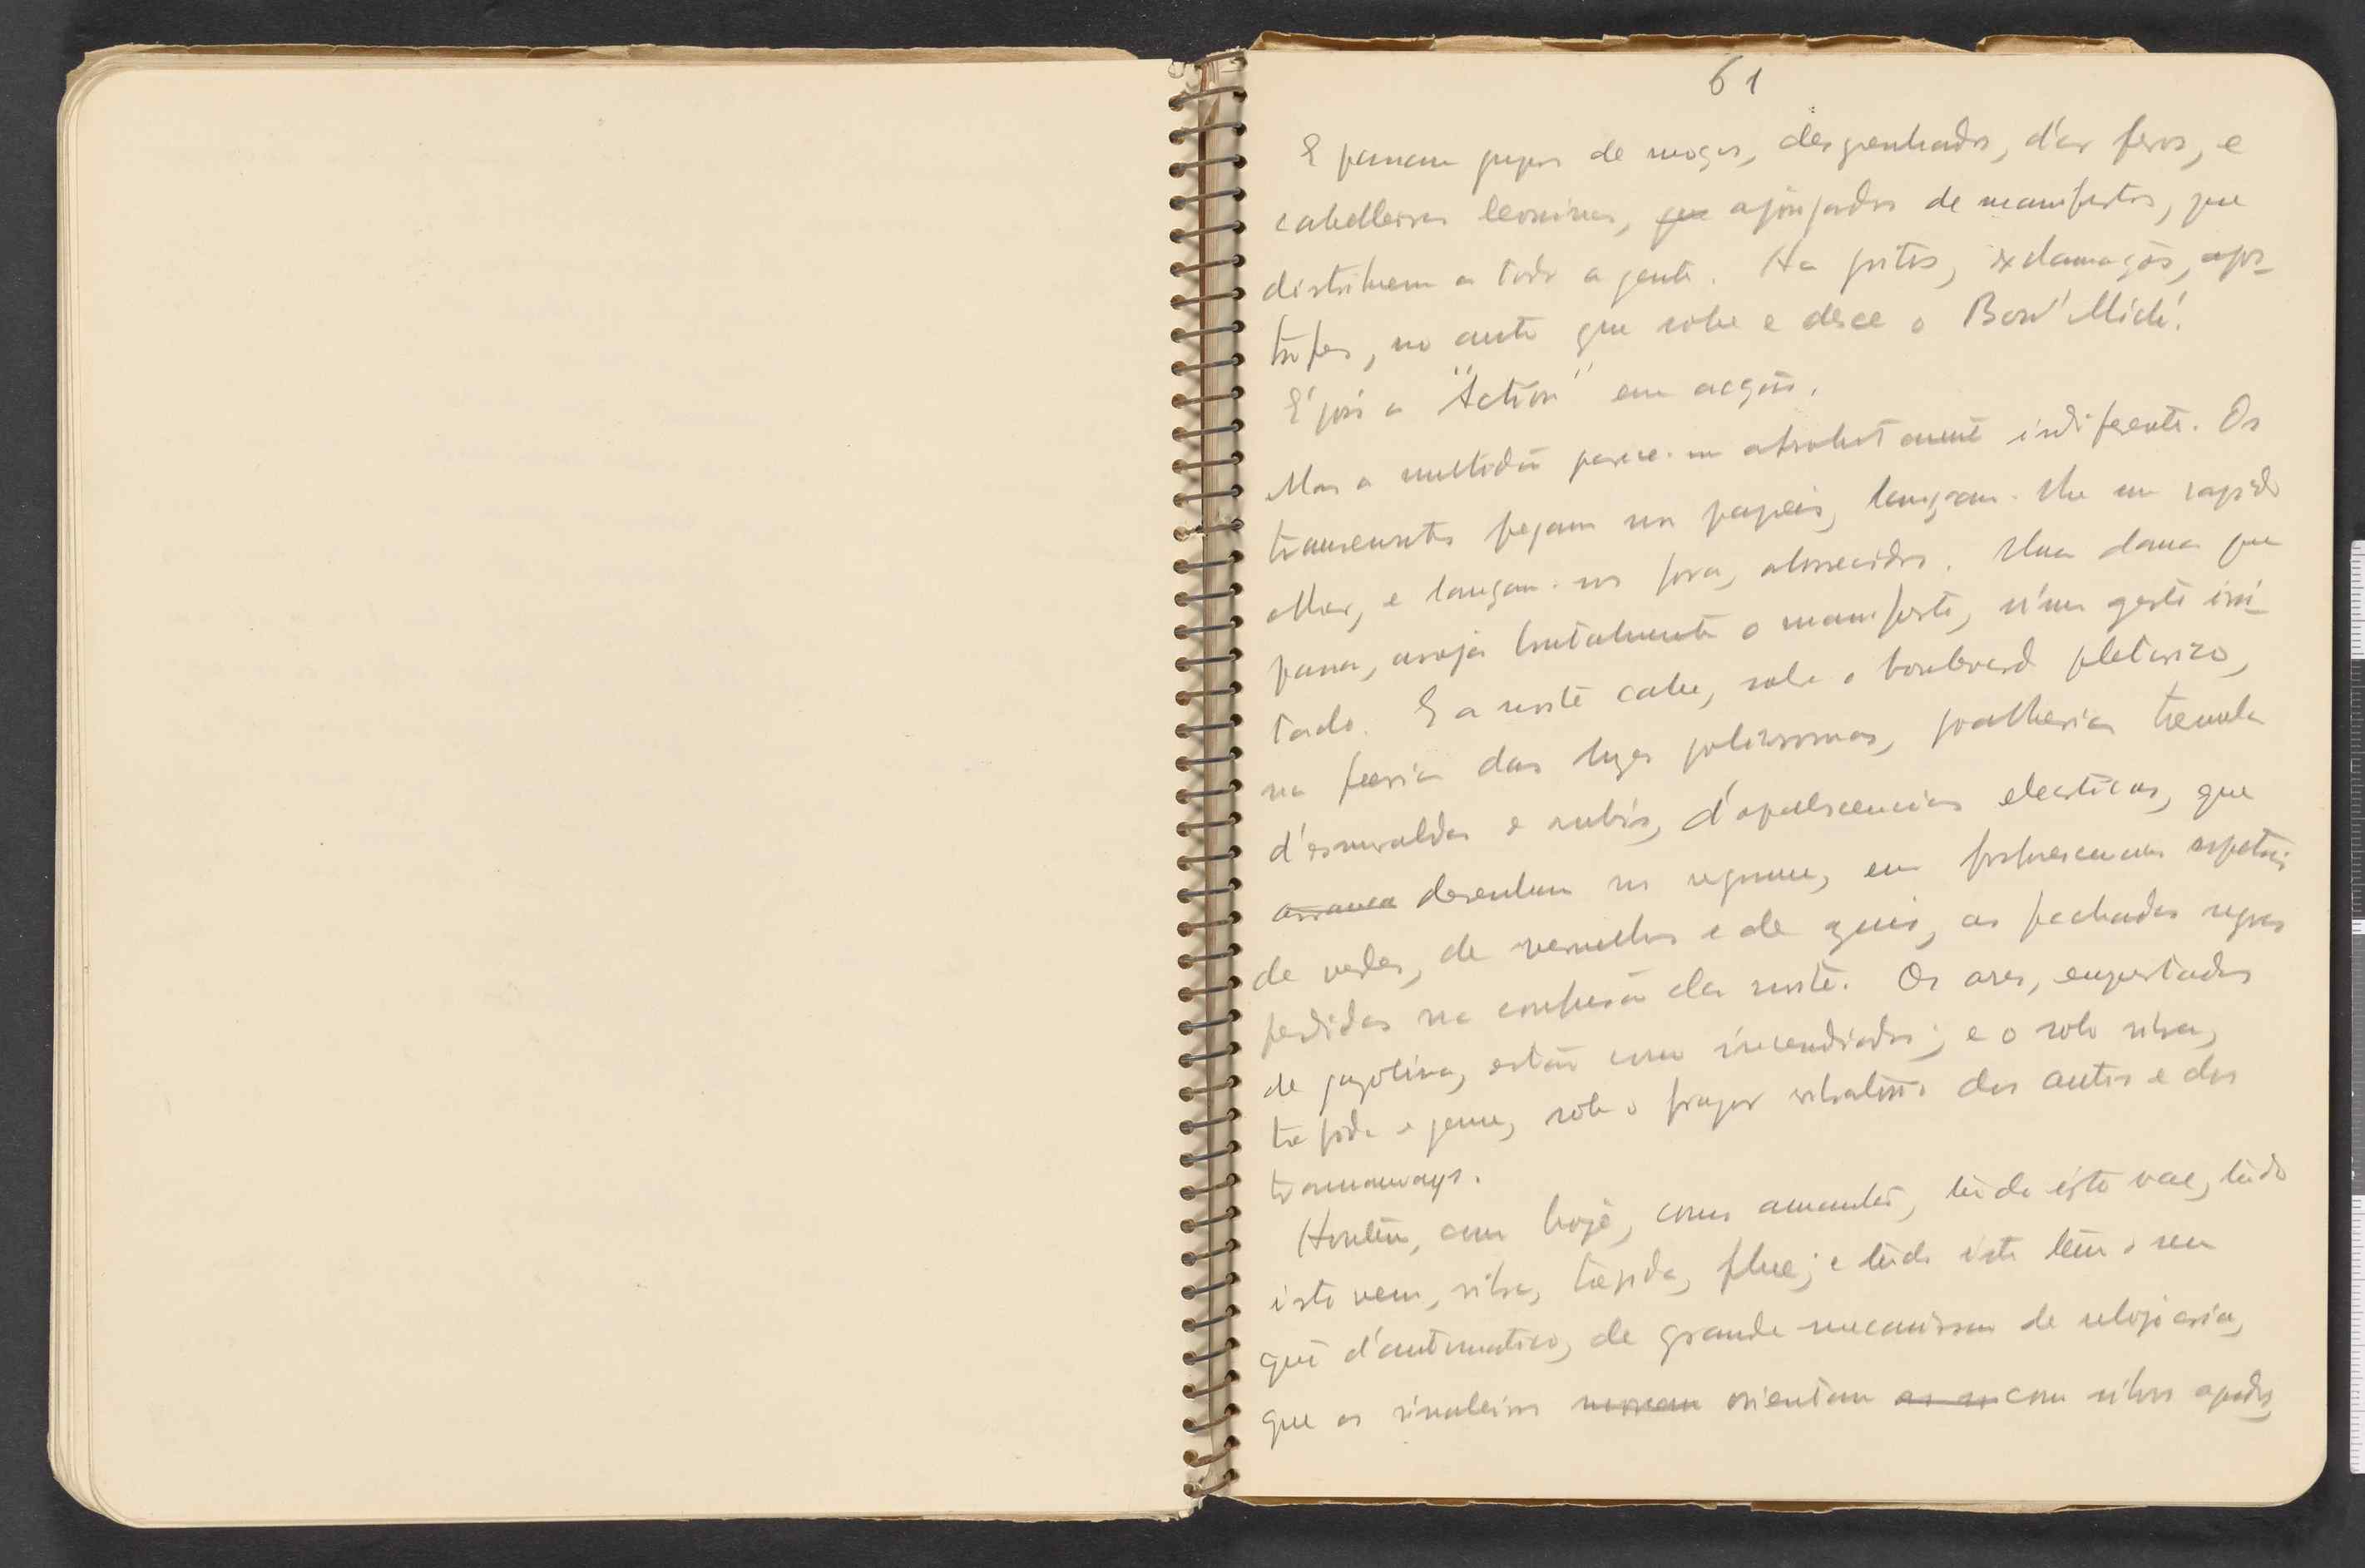 61
E passam grupos de moços, desgrenhados, d'ar feroz, e
cabelleiras leoninas, que ajoujados de manifestos, que
distribuem a toda a gente. Ha gritos, exclamações, apos-
trofes, no auto que sobe e desce o Boul' Mich'.
E' pois a "Action" em acção.
Mas a multidão parece-me absolutamente indiferente. Os
transeuntes pegam nos papeis, lançam-lhe um rapido
olhar, e lançam-nos fora, aborrecidos. Uma dama que
passa, arroja brutalmente o manifesto, n'um gesto irri-
tado. E a noite cahe, sobre o boulevard pletorico,
na feeria das luzes policromas, joalheria tremula
d'esmeraldas e rubis, d'opalescencias electricas, que
arranca desenham no negrume, em fosforescencias espetrais
de verdes, de vermelhos e de azuis, as fachadas negras
perdidas na confusão da noite. Os ares, empestados
de gazolina, estão como incendiados; e o solo vibra,
trepida e geme, sob o fragor vibratorio dos autos e dos
tramways.
Hontem, como hoje, como amanhã, tudo isto vae, tudo
isto vem, vibra, trepida, flue; e tudo isto tem o seu
quê d'automatico, de grande mecanismo de relojoaria,
que os sinaleiros orientam com silvos agudos,